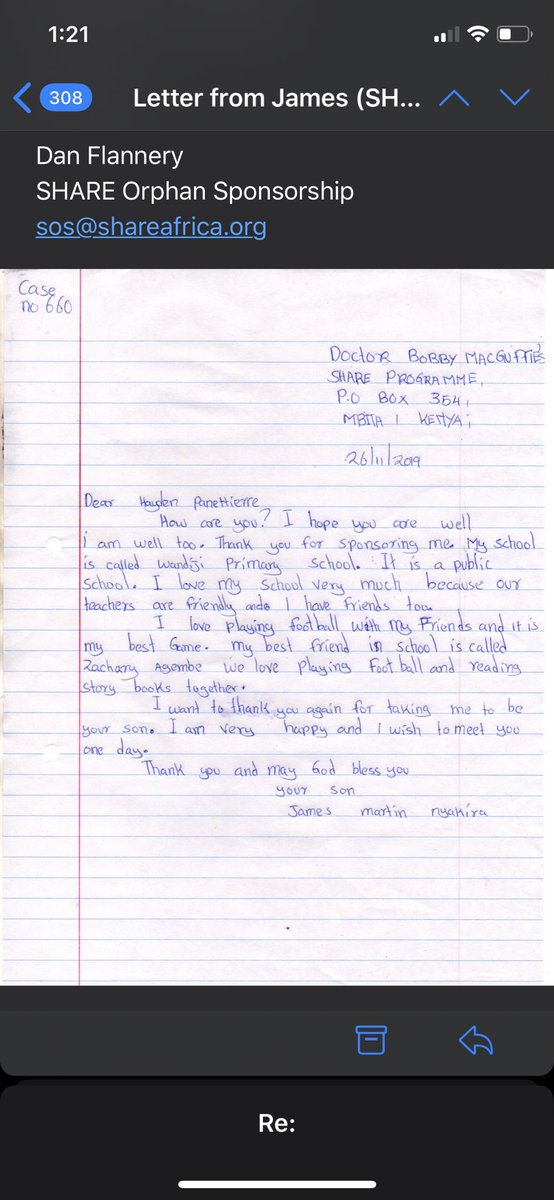 1:21
308
Letter from James (SH...
Dan Flannery
SHARE Orphan Sponsorship
sos@shareafrica.org
Case
no 660
Doctor BOBBY MACGUFFIE'S
SHARE PROGRAMME,
P.O BOX 354,
MBITA / KENYA;
26/11/2019
Dear Hayden Panettierre
How are you? I hope you are well
i am well too. Thank you for sponsoring me. My school
is called wandiji Primary school. It is a public
school. I love my school very much because our
teachers are friendly and I have friends too.
I love playing football with my Friends and it is
my best Game. my best friend in school is called
Zachary Agembe we love playing Foot ball and reading
story books together.
I want to thank you again for taking me to be
your son. I am very happy and I wish to meet you
one day.
Thank you and may God bless you
your son
James martin nyakira
Re: